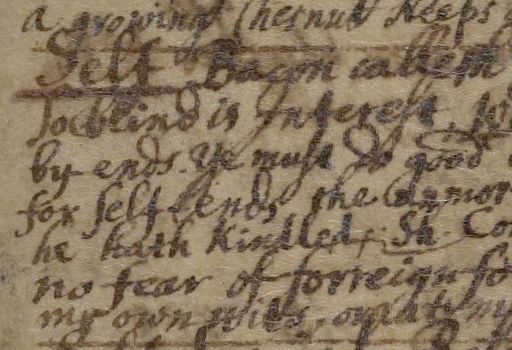 a growing Chesnut keeps
Self Bacon calleth
So blind is Interest
by ends. Ye must do good
for self ends the
he hath kindled. Sh. Con
no fear of forreign fo
my own wits,